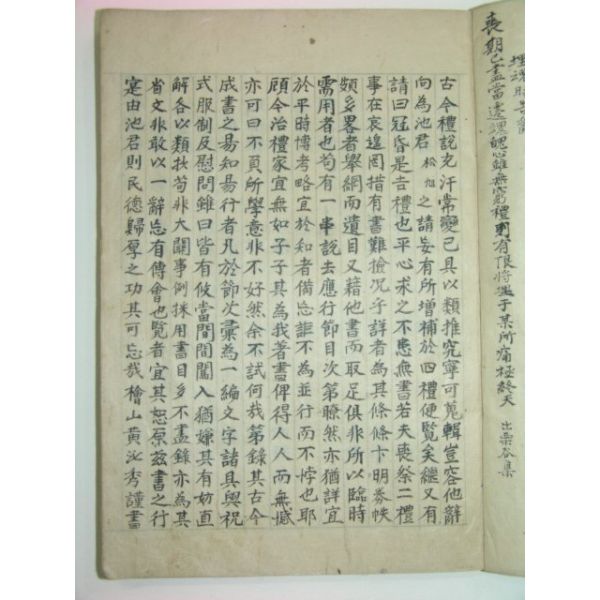 埋魂
喪期已盡當心雖無窮禮則有限將埋于某所痛極終天 出栗谷集
古今禮說充汗常變已具以類推究寧可蒐輯豈容他辭
向為池君松旭之請妄有所增補於四禮便覽矣繼又有
請曰冠昏是吉禮也平心求之不患無書若夫喪祭二禮
事在哀遑罔措有書難撿況乎詳者為其條條卞明劵帙
頗多畧者舉綱而遺目又藉他書而取足俱非所以臨時
需用者也苟有一事說去應行節目次第瞭然亦猶詳宜
於平時博考略宜於知者備忘詎不為並行而不悖也耶
顧今治禮家宜無如子子其為我著書俾得人人而無憾
亦可曰不負所學意非不好然余不試何哉第錄其古今
成書之易知易行者凡於節次彙為一編文字諸具與祝
式服制及慰問雖曰皆有攸當間間闖入猶嫌其有妨直
解各以類抄苟非大關事例採用書目多不盡錄亦為其
省文非敢以一辭忘有傅會也覽者宜其恕原玆書之行
寔由池君則民德歸厚之功其可忘哉檜山黃泌秀謹書